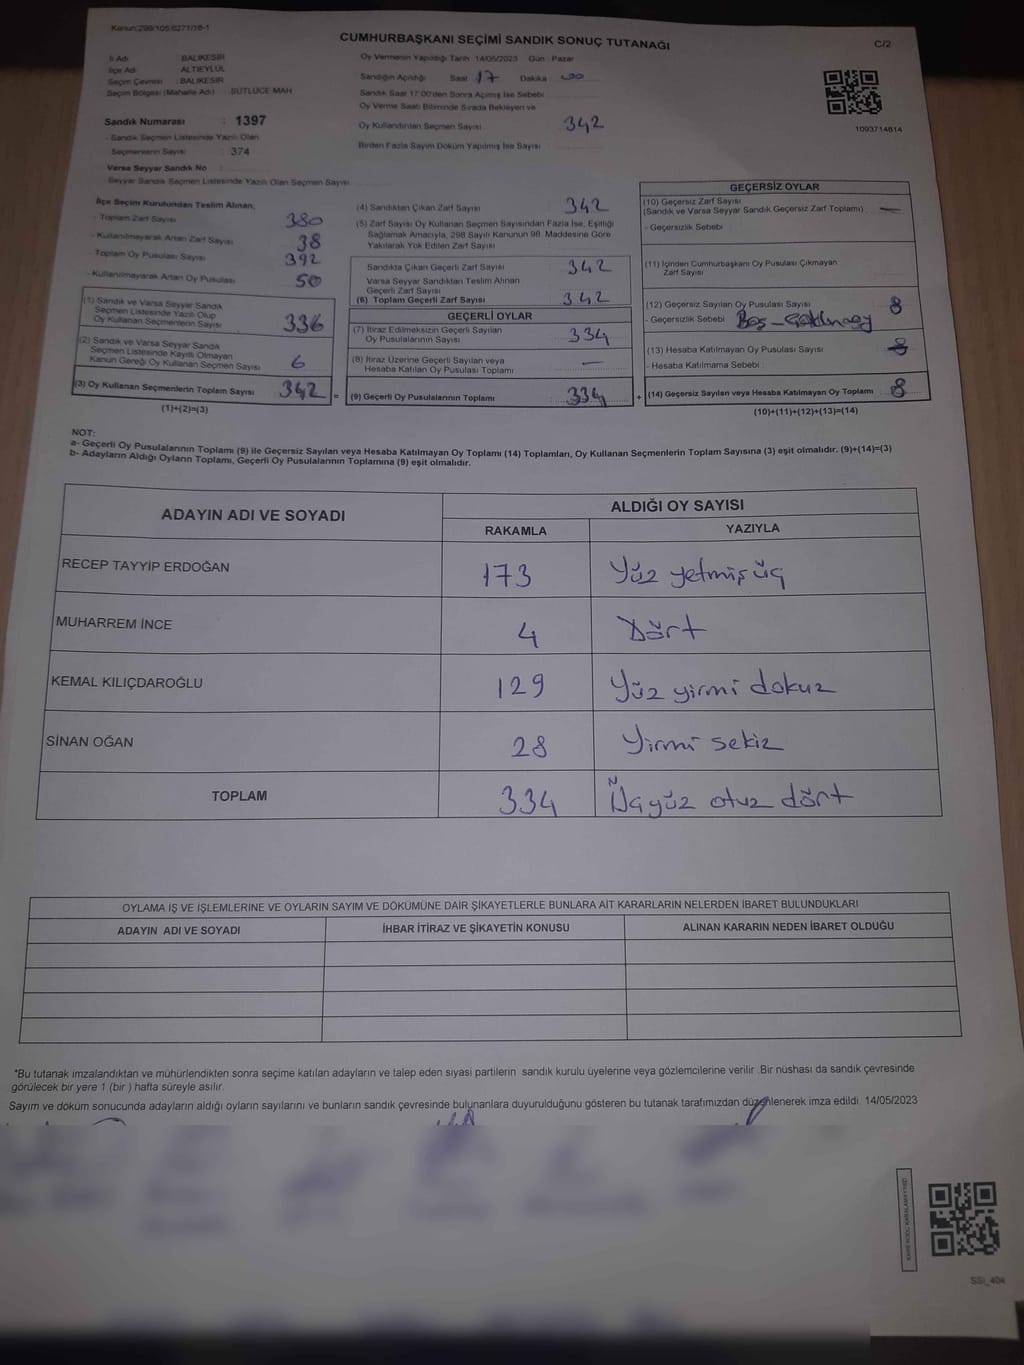 Kanun:298/105.6271/16-1
CUMHURBAŞKANI SEÇİMİ SANDIK SONUÇ TUTANAĞI
C/2
İl Adı : BALIKESİR
İlçe Adı : ALTIEYLÜL
Seçim Çevresi : BALIKESİR
Seçim Bölgesi (Mahalle Adı) : SÜTLÜCE MAH
Oy Vermenin Yapıldığı Tarih 14/05/2023 Gün : Pazar
Sandığın Açıldığı Saat 17 Dakika 00
Sandık Saat 17:00'den Sonra Açılmış İse Sebebi
Oy Verme Saati Bitiminde Sırada Bekleyen ve
Oy Kullandırılan Seçmen Sayısı 342
Birden Fazla Sayım Döküm Yapılmış İse Sayısı
1093714614
Sandık Numarası : 1397
- Sandık Seçmen Listesinde Yazılı Olan
Seçmenlerin Sayısı : 374
Varsa Seyyar Sandık No
- Seyyar Sandık Seçmen Listesinde Yazılı Olan Seçmen Sayısı
İlçe Seçim Kurulundan Teslim Alınan;
- Toplam Zarf Sayısı 380
- Kullanılmayarak Artan Zarf Sayısı 38
- Toplam Oy Pusulası Sayısı 392
- Kullanılmayarak Artan Oy Pusulası 50
(1) Sandık ve Varsa Seyyar Sandık
Seçmen Listesinde Yazılı Olup
Oy Kullanan Seçmenlerin Sayısı 336
(2) Sandık ve Varsa Seyyar Sandık
Seçmen Listesinde Kayıtlı Olmayan
Kanun Gereği Oy Kullanan Seçmen Sayısı 6
(3) Oy Kullanan Seçmenlerin Toplam Sayısı 342 =
(1)+(2)=(3)
(4) Sandıktan Çıkan Zarf Sayısı 342
(5) Zarf Sayısı Oy Kullanan Seçmen Sayısından Fazla İse, Eşitliği
Sağlamak Amacıyla, 298 Sayılı Kanunun 98. Maddesine Göre
Yakılarak Yok Edilen Zarf Sayısı
Sandıkta Çıkan Geçerli Zarf Sayısı 342
Varsa Seyyar Sandıktan Teslim Alınan
Geçerli Zarf Sayısı
(6) Toplam Geçerli Zarf Sayısı 342
GEÇERLİ OYLAR
(7) İtiraz Edilmeksizin Geçerli Sayılan
Oy Pusulalarının Sayısı 334
(8) İtiraz Üzerine Geçerli Sayılan veya
Hesaba Katılan Oy Pusulası Toplamı —
(9) Geçerli Oy Pusulalarının Toplamı 334 +
GEÇERSİZ OYLAR
(10) Geçersiz Zarf Sayısı
(Sandık ve Varsa Seyyar Sandık Geçersiz Zarf Toplamı) —
- Geçersizlik Sebebi
(11) İçinden Cumhurbaşkanı Oy Pusulası Çıkmayan
Zarf Sayısı
(12) Geçersiz Sayılan Oy Pusulası Sayısı 8
- Geçersizlik Sebebi Boş-
(13) Hesaba Katılmayan Oy Pusulası Sayısı 8
- Hesaba Katılmama Sebebi
(14) Geçersiz Sayılan veya Hesaba Katılmayan Oy Toplamı 8
(10)+(11)+(12)+(13)=(14)
NOT:
a- Geçerli Oy Pusulalarının Toplamı (9) ile Geçersiz Sayılan veya Hesaba Katılmayan Oy Toplamı (14) Toplamları, Oy Kullanan Seçmenlerin Toplam Sayısına (3) eşit olmalıdır. (9)+(14)=(3)
b- Adayların Aldığı Oyların Toplamı, Geçerli Oy Pusulalarının Toplamına (9) eşit olmalıdır.
ADAYIN ADI VE SOYADI
ALDIĞI OY SAYISI
RAKAMLA YAZIYLA
RECEP TAYYİP ERDOĞAN 173 Yüz yetmiş üç
MUHARREM İNCE 4 Dört
KEMAL KILIÇDAROĞLU 129 Yüz yirmi dokuz
SİNAN OĞAN 28 Yirmi sekiz
TOPLAM 334 Üçyüz otuz dört
OYLAMA İŞ VE İŞLEMLERİNE VE OYLARIN SAYIM VE DÖKÜMÜNE DAİR ŞİKAYETLERLE BUNLARA AİT KARARLARIN NELERDEN İBARET BULUNDUKLARI
ADAYIN ADI VE SOYADI İHBAR İTİRAZ VE ŞİKAYETİN KONUSU ALINAN KARARIN NEDEN İBARET OLDUĞU
"Bu tutanak imzalandıktan ve mühürlendikten sonra seçime katılan adayların ve talep eden siyasi partilerin sandık kurulu üyelerine veya gözlemcilerine verilir .Bir nüshası da sandık çevresinde
görülecek bir yere 1 (bir ) hafta süreyle asılır.
Sayım ve döküm sonucunda adayların aldığı oyların sayılarını ve bunların sandık çevresinde bulunanlara duyurulduğunu gösteren bu tutanak tarafımızdan düzenlenerek imza edildi. 14/05/2023
SSI_404